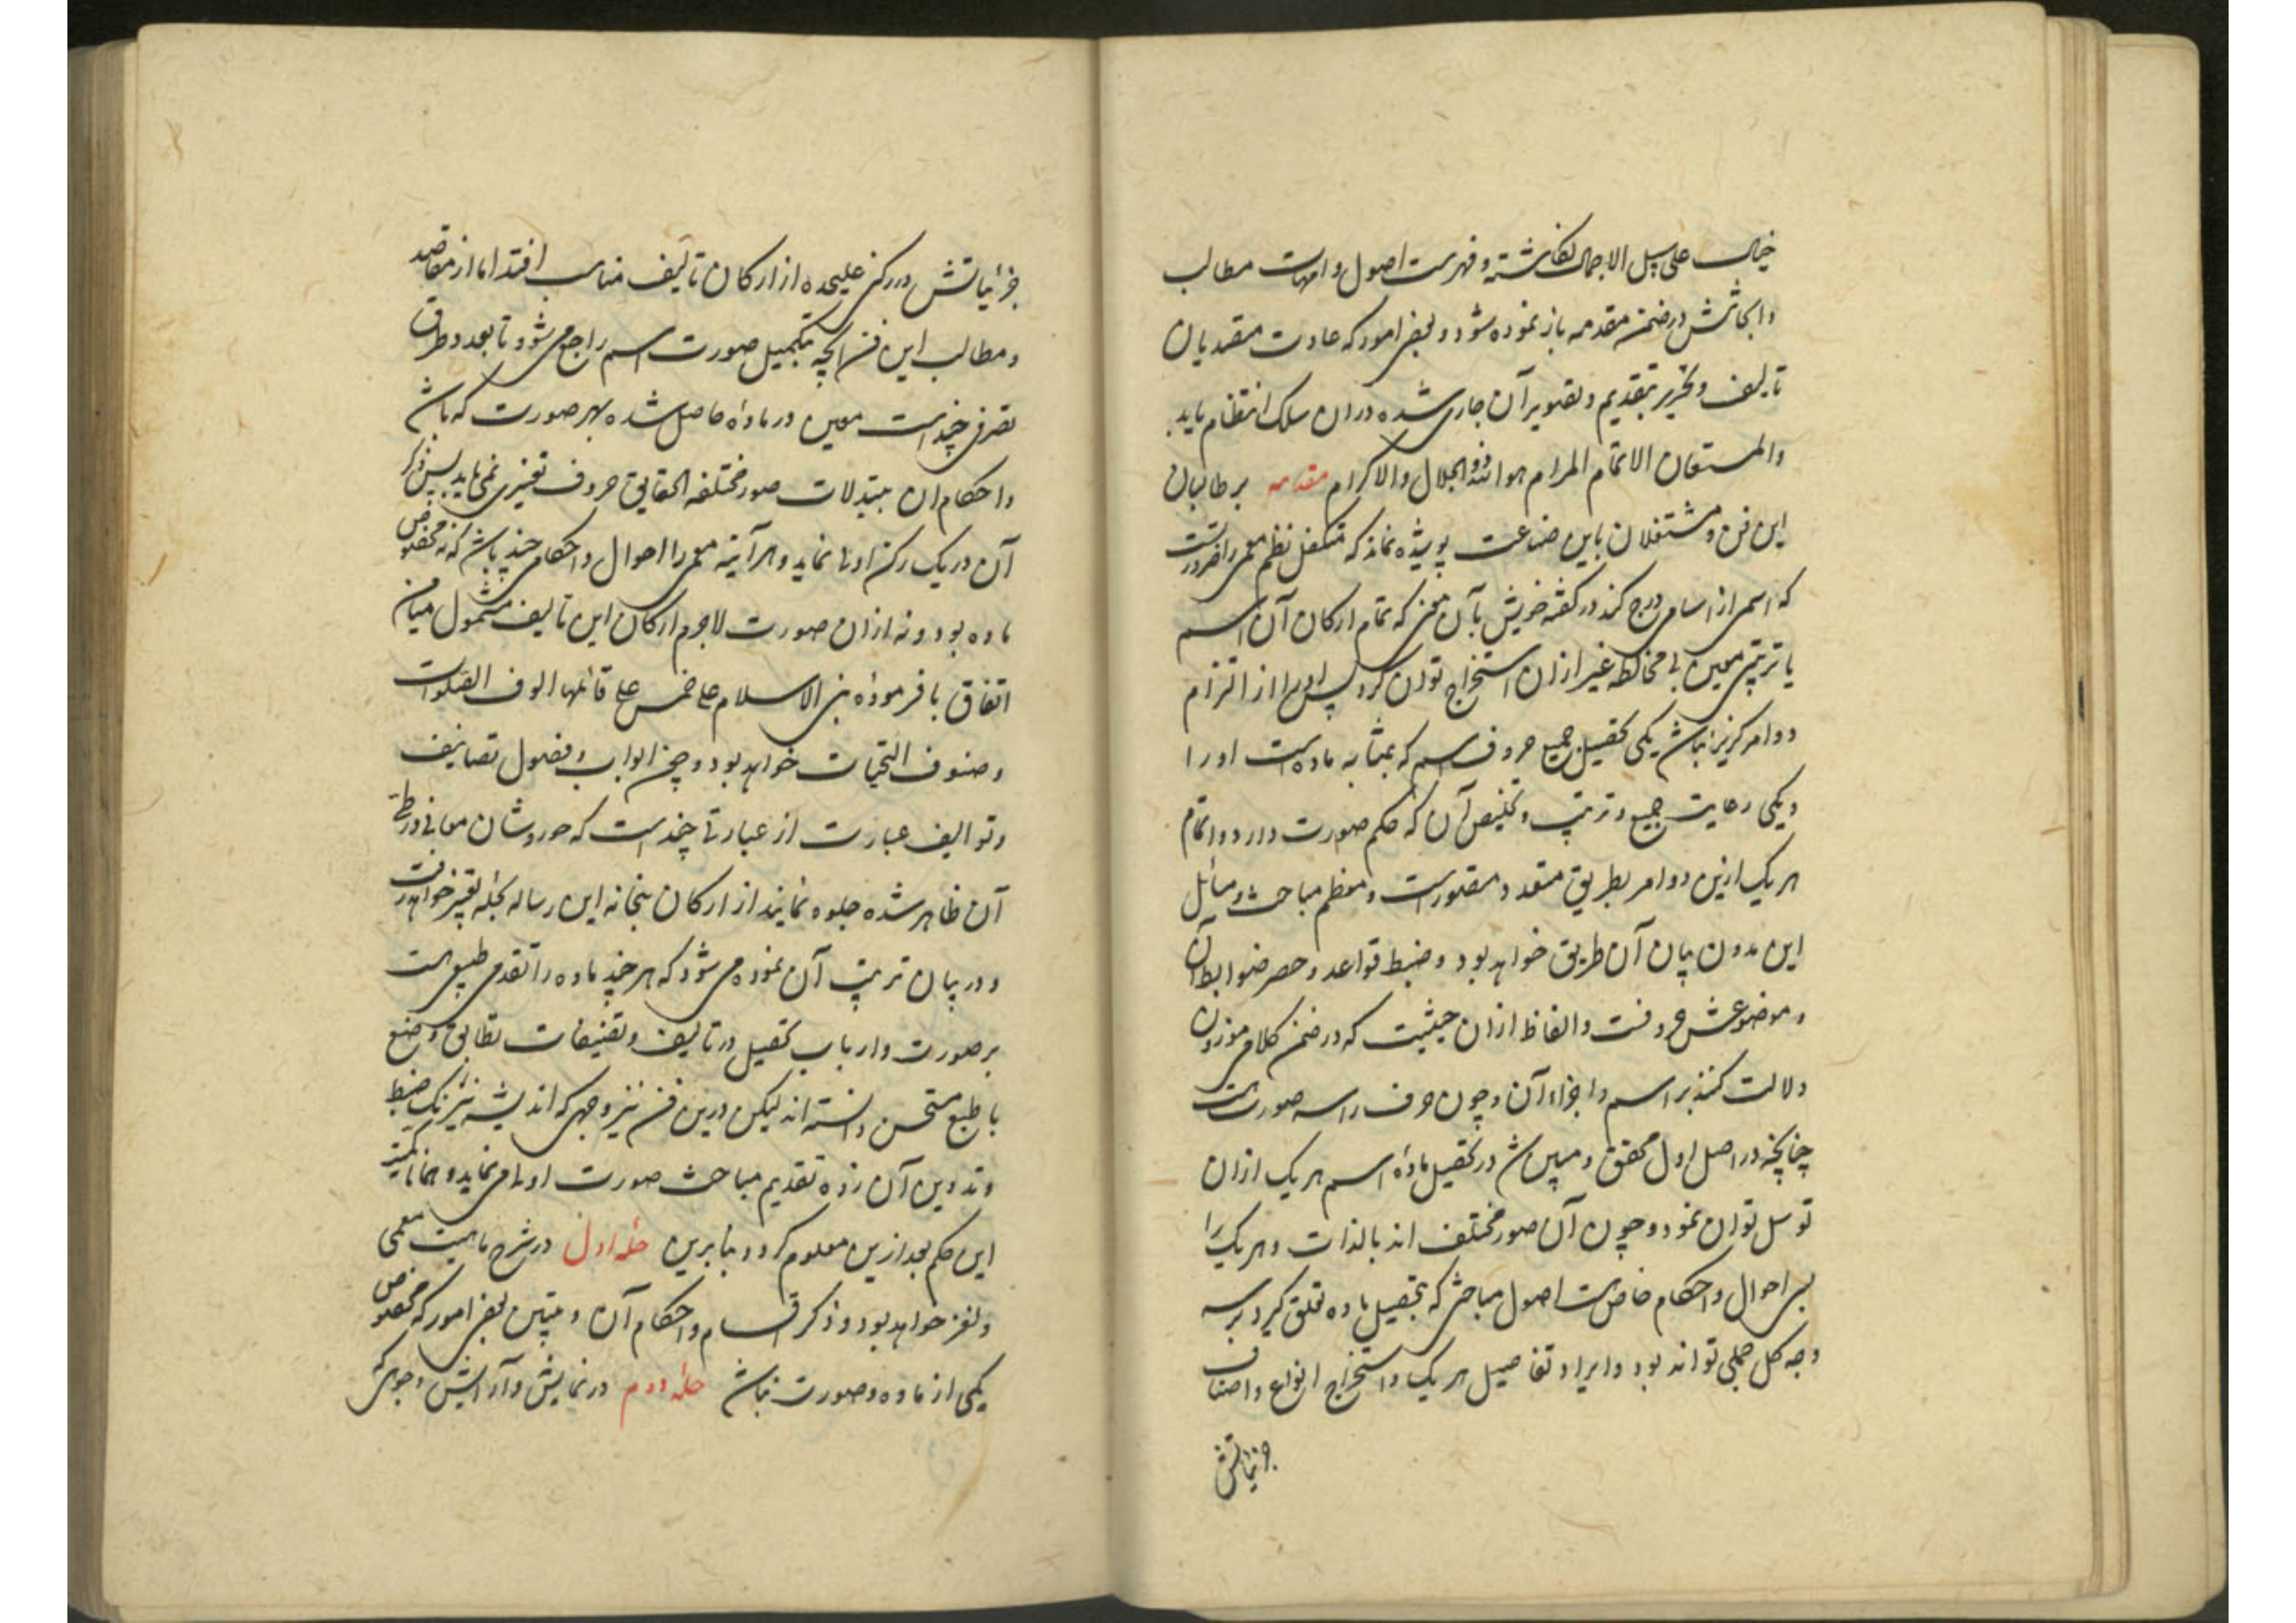 خیال علی سبیل الاجمال نگاشته و فهرست اصول و امهات مطالب
و ابحاثش در ضمن مقدمه باز نموده شود و بعضی امور که عادت متصدیان
تالیف و تحریر بتقدیم و تصویر آن جاری شده در ان سلک انتظام یابد
والمستعان لاتمام المرام هو الله ذو الجلال والاکرام مقدمه بر طالبان
این فن و مشتغلان باین صناعت پوشیده نماند که متکفل نظم معمی را ضرورتست
که اسمی از اسامی درج کند در گفته خویش بآن معنی که تمام ارکان آن اسم
با ترتیبی معین بی مخالطه غیر ازان استخراج توان کرد پس او را از التزام
دو امر گزیر نباشد یکی تحصیل جمیع حروف اسم که بمثابه ماده است او را
و یکی رعایت جمیع و ترتیب و تلخیص آن که حکم صورت دارد و اتمام
هر یک ازین دو امر بطریق متعدد متصورست و معظم مباحث و مسائل
این مدون بیان آن طریق خواهد بود و ضبط قواعد و حصر ضوابط آن
و موضوعش حروفست و الفاظ ازان حیثیت که در ضمن کلام موزون
دلالت کنند بر اسم و اجزاء آن و چون حرف را سه صورتست
چنانچه در اصل اول محقق و مبین شد در تحصیل ماده اسم بهر یک ازان
توسل توان نمود و چون آن صور مختلف اند بالذات و هر یک را
بسی احوال و احکام خاص است اصول مباحثی که بتحصیل ماده تعلق گیرد بر سه
وجه کل جملی تواند بود و ایراد تفاصیل هر یک و استخراج انواع و اصناف
جزئیاتش
جزئیاتش در رکنی علیحده از ارکان تالیف مناسب افتد اما از مقاصد
و مطالب این فن آنچه بتکمیل صورت اسم راجع می شود تا بعد و طرق
تصرفی چند است معین در ماده حاصل شده بهر صورت که باشد
و احکام ان بتبدلات صور مختلفه الحقایق حروف تغیری نمی یابد پس ذکر
آن در یک رکن اولی نماید و هر آینه معمی را احوال و احکامی چند باشد که نه مخصوص
ماده بود و نه ازان صورت لاجرم ارکان این تالیف مشمول میامن
اتفاق با فرموده بنی الاسلام علی خمس علی قائلها الوف الصلوات
و صنوف التحیات خواهد بود و چون ابواب و فصول تصانیف
و توالیف عبارت از عبارتی چند است که حور وشان معانی در طی
آن ظاهر شده جلوه نمایند از ارکان پنجگانه این رساله بحله تعبیر خواهد رفت
و در بیان ترتیب آن نموده می شود که هر چند ماده را تقدمی طبیعی است
بر صورت و ارباب تحصیل در تالیف و تصنیفات تطابق وضع
با طبع مستحسن دانسته اند لیکن درین فن نیز وجهی که اندیشه نیرنگ ضبط
و تدوین آن زده تقدیم مباحث صورت اولی می نماید و همانا
این حکم بعد ازین معلوم گردد بنابرین حله اول در شرح ماهیت معمی
و لغز خواهد بود و ذکر اقسام و احکام آن و تبیین بعضی امور که مخصوص
یکی از ماده و صورت نباشد حله دوم در نمایش و آرایش وجوهی که